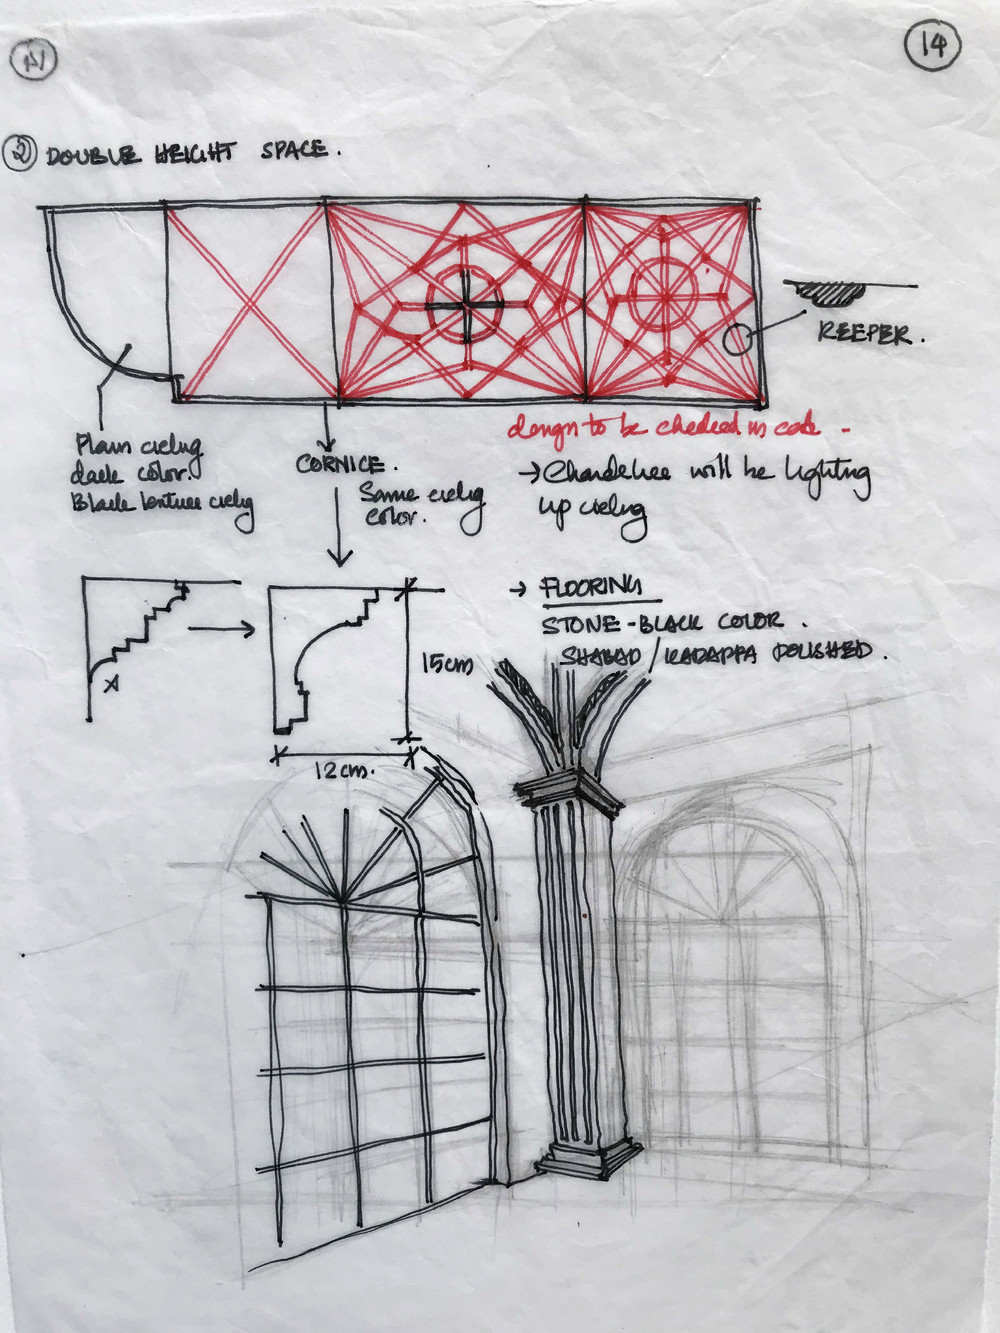 14
② DOUBLE HEIGHT SPACE.
REEPER.
Plain cieling
dark color.
Black texture cieling
CORNICE.
Same cieling
color.
design to be checked in cad -
→ Chandelier will be lighting
up cieling
→ FLOORING
STONE - BLACK COLOR.
SHABAD / KADAPPA POLISHED.
15cm
12cm.